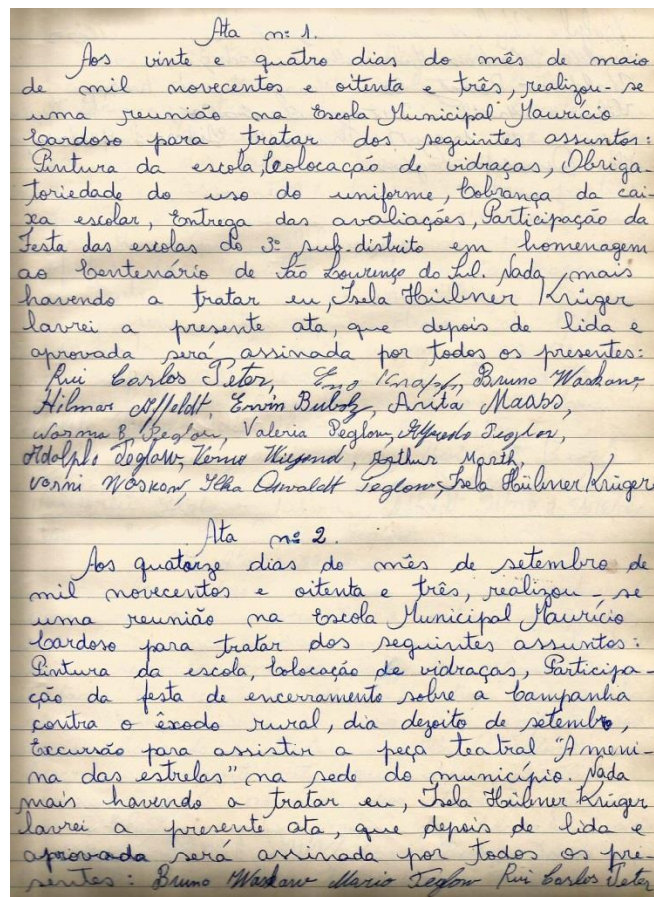 Ata nº 1.
Aos vinte e quatro dias do mês de maio
de mil novecentos e oitenta e três, realizou-se
uma reunião na Escola Municipal Maurício
Cardoso para tratar dos seguintes assuntos:
Pintura da escola, Colocação de vidraças, Obriga-
toriedade do uso do uniforme, Cobrança da cai-
xa escolar, Entrega das avaliações, Participação da
Festa das escolas do 3º sub-distrito em homenagem
ao Centenário de São Lourenço do Sul. Nada mais
havendo a tratar eu, Isela Hübner Krüger
lavrei a presente ata, que depois de lida e
aprovada será assinada por todos os presentes:
Rui Carlos Peter, Bruno Waskow,
Hilmar Affeldt, Ervin Bubolz, Anita Maass,
B. Peglow, Valeria Peglow, Alfredo Peglow,
Adolpho Peglow, Arthur Marth,
Waskow, Ilka Oswaldt Peglow, Isela Hübner Krüger
Ata nº 2.
Aos quatorze dias do mês de setembro de
mil novecentos e oitenta e três, realizou-se
uma reunião na Escola Municipal Maurício
Cardoso para tratar dos seguintes assuntos:
Pintura da escola, Colocação de vidraças, Participa-
ção da festa de encerramento sobre a Campanha
contra o êxodo rural, dia dezoito de setembro,
Excursão para assistir a peça teatral "A meni-
na das estrelas" na sede do município. Nada
mais havendo a tratar eu, Isela Hübner Krüger
lavrei a presente ata, que depois de lida e
aprovada será assinada por todos os pre-
sentes: Bruno Waskow Mario Peglow Rui Carlos Peter